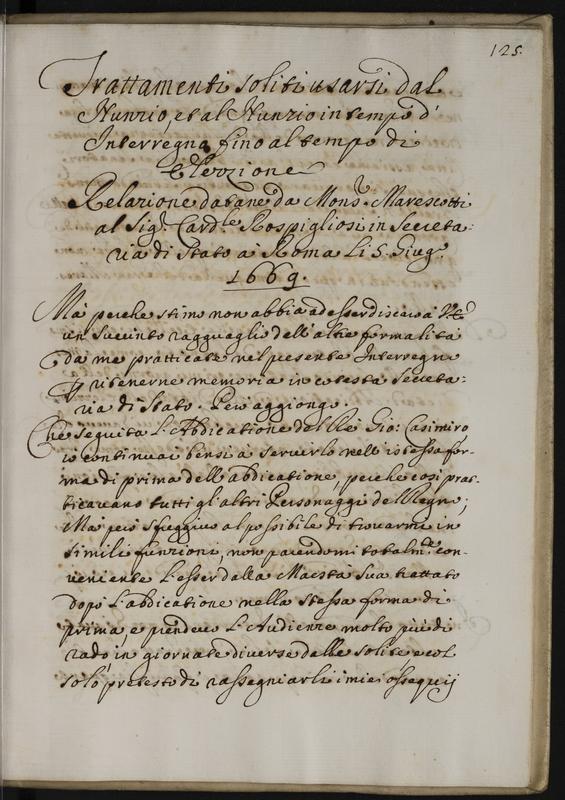 125.
Trattamenti soliti usarsi dal
Nunzio, et al Nunzio in tempo d'
Interregno fino al tempo di
Elezzione
Relazione datane da Mons.r Marescotti
al Sig.r Card.le Rospigliosi in Secreta:
ria di Stato à Roma li 5. Giug.o
1669.
Mà perche stimo non abbia ad esser discaro à V.E.
un succinto ragguaglio dell'altre formalità
da me pratticate nel presente Interregno
ritenerne memoria in cotesta Secreta:
ria di Stato. Però aggiongo.
Che seguita l'Abdicatione del Rè Gio: Casimiro
io continuai bensì à servirlo nell'istessa for-
ma di prima dell'abdicatione, perche così prat-
ticavano tutti gl'altri Personaggi del Regno;
Mà però sfuggivo al possibile di trovarmi in
simili funzioni, non parendomi totalm.te con-
veniente l'esser dalla Maestà Sua trattato
dopò l'abdicatione nella stessa forma di
prima, e prendevo l'Audienze molto più di
rado in giornate diverse dalle solite e col
solo pretesto di rassegniarli i miei ossequij